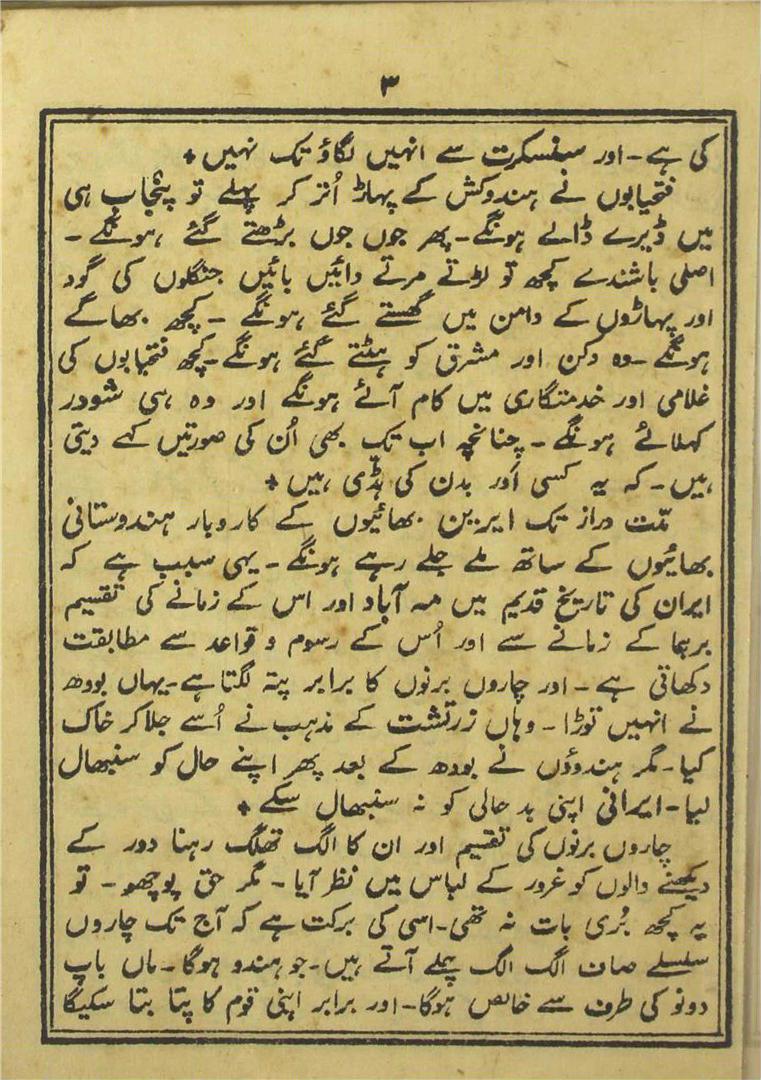 ۳
کی ہے۔ اور سنسکرت سے انہیں لگاؤ تک نہیں +
فتحیابوں نے ہندوکش کے پہاڑ اُتر کر پہلے تو پنجاب ہی
میں ڈیرے ڈالے ہونگے۔ پھر جوں جوں بڑھتے گئے ہونگے۔
اصلی باشندے کچھ تو لڑتے مرتے دائیں بائیں جنگلوں کی گود
اور پہاڑوں کے دامن میں گھستے گئے ہونگے ۔ کچھ بھاگے
ہونگے۔ وہ دکن اور مشرق کو ہٹتے گئے ہونگے۔ کچھ فتحیابوں کی
غلامی اور خدمتگاری میں کام آئے ہونگے اور وہ ہی شودر
کہلائے ہونگے ۔ چنانچہ اب تک بھی اُن کی صورتیں کہے دیتی
ہیں۔ کہ یہ کسی اَور بدن کی ہڈی ہیں +
مّت دراز تک ایرین بھائیوں کے کاروبار ہندوستانی
بھائیوں کے ساتھ ملے جلے رہے ہونگے ۔ یہی سبب ہے کہ
ایران کی تاریخ قدیم میں مہ آباد اور اس کے زمانے کی تقسیم
برہما کے زمانے سے اور اُس کے رسوم و قواعد سے مطابقت
دکھاتی ہے ۔ اور چاروں برنوں کا برابر پتہ لگتا ہے۔ یہاں بودھ
نے انہیں توڑا ۔ وہاں زرتشت کے مذہب نے اُسے جلا کر خاک
کیا۔ مگر ہندوؤں نے بودھ کے بعد پھر اپنے حال کو سنبھال
لیا۔ ایرانی اپنی بد حالی کو نہ سنبھال سکے +
چاروں برنوں کی تقسیم اور ان کا الگ تھلگ رہنا دور کے
دیکھنے والوں کو غرور کے لباس میں نظر آیا ۔ مگر حق پوچھو ۔ تو
یہ کچھ بُری بات نہ تھی۔ اسی کی برکت ہے کہ آج تک چاروں
سلسلے صاف الگ الگ چلے آتے ہیں۔ جو ہندو ہوگا۔ ماں باپ
دونو کی طرف سے خالص ہوگا۔ اور برابر اپنی قوم کا پتا بتا سکیگا